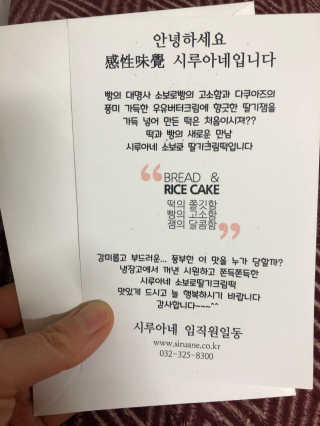 안녕하세요
感性味覺 시루아네입니다
빵의 대명사 소보로빵의 고소함과 다쿠아즈의
풍미 가득한 우유버터크림에 향긋한 딸기잼을
가득 넣어 만든 떡은 처음이시져??
떡과 빵의 새로운 만남
시루아네 소보로 딸기크림떡입니다
“BREAD &
RICE CAKE
떡의 쫄깃함
빵의 고소함
잼의 달콤함”
감미롭고 부드러운... 풍부한 이 맛을 누가 당할까?
냉장고에서 꺼낸 시원하고 쫀득쫀득한
시루아네 소보로딸기크림떡
맛있게 드시고 늘 행복하시기 바랍니다
감사합니다~~~^^
시루아네 임직원일동
www.siruane.co.kr
032-325-8300